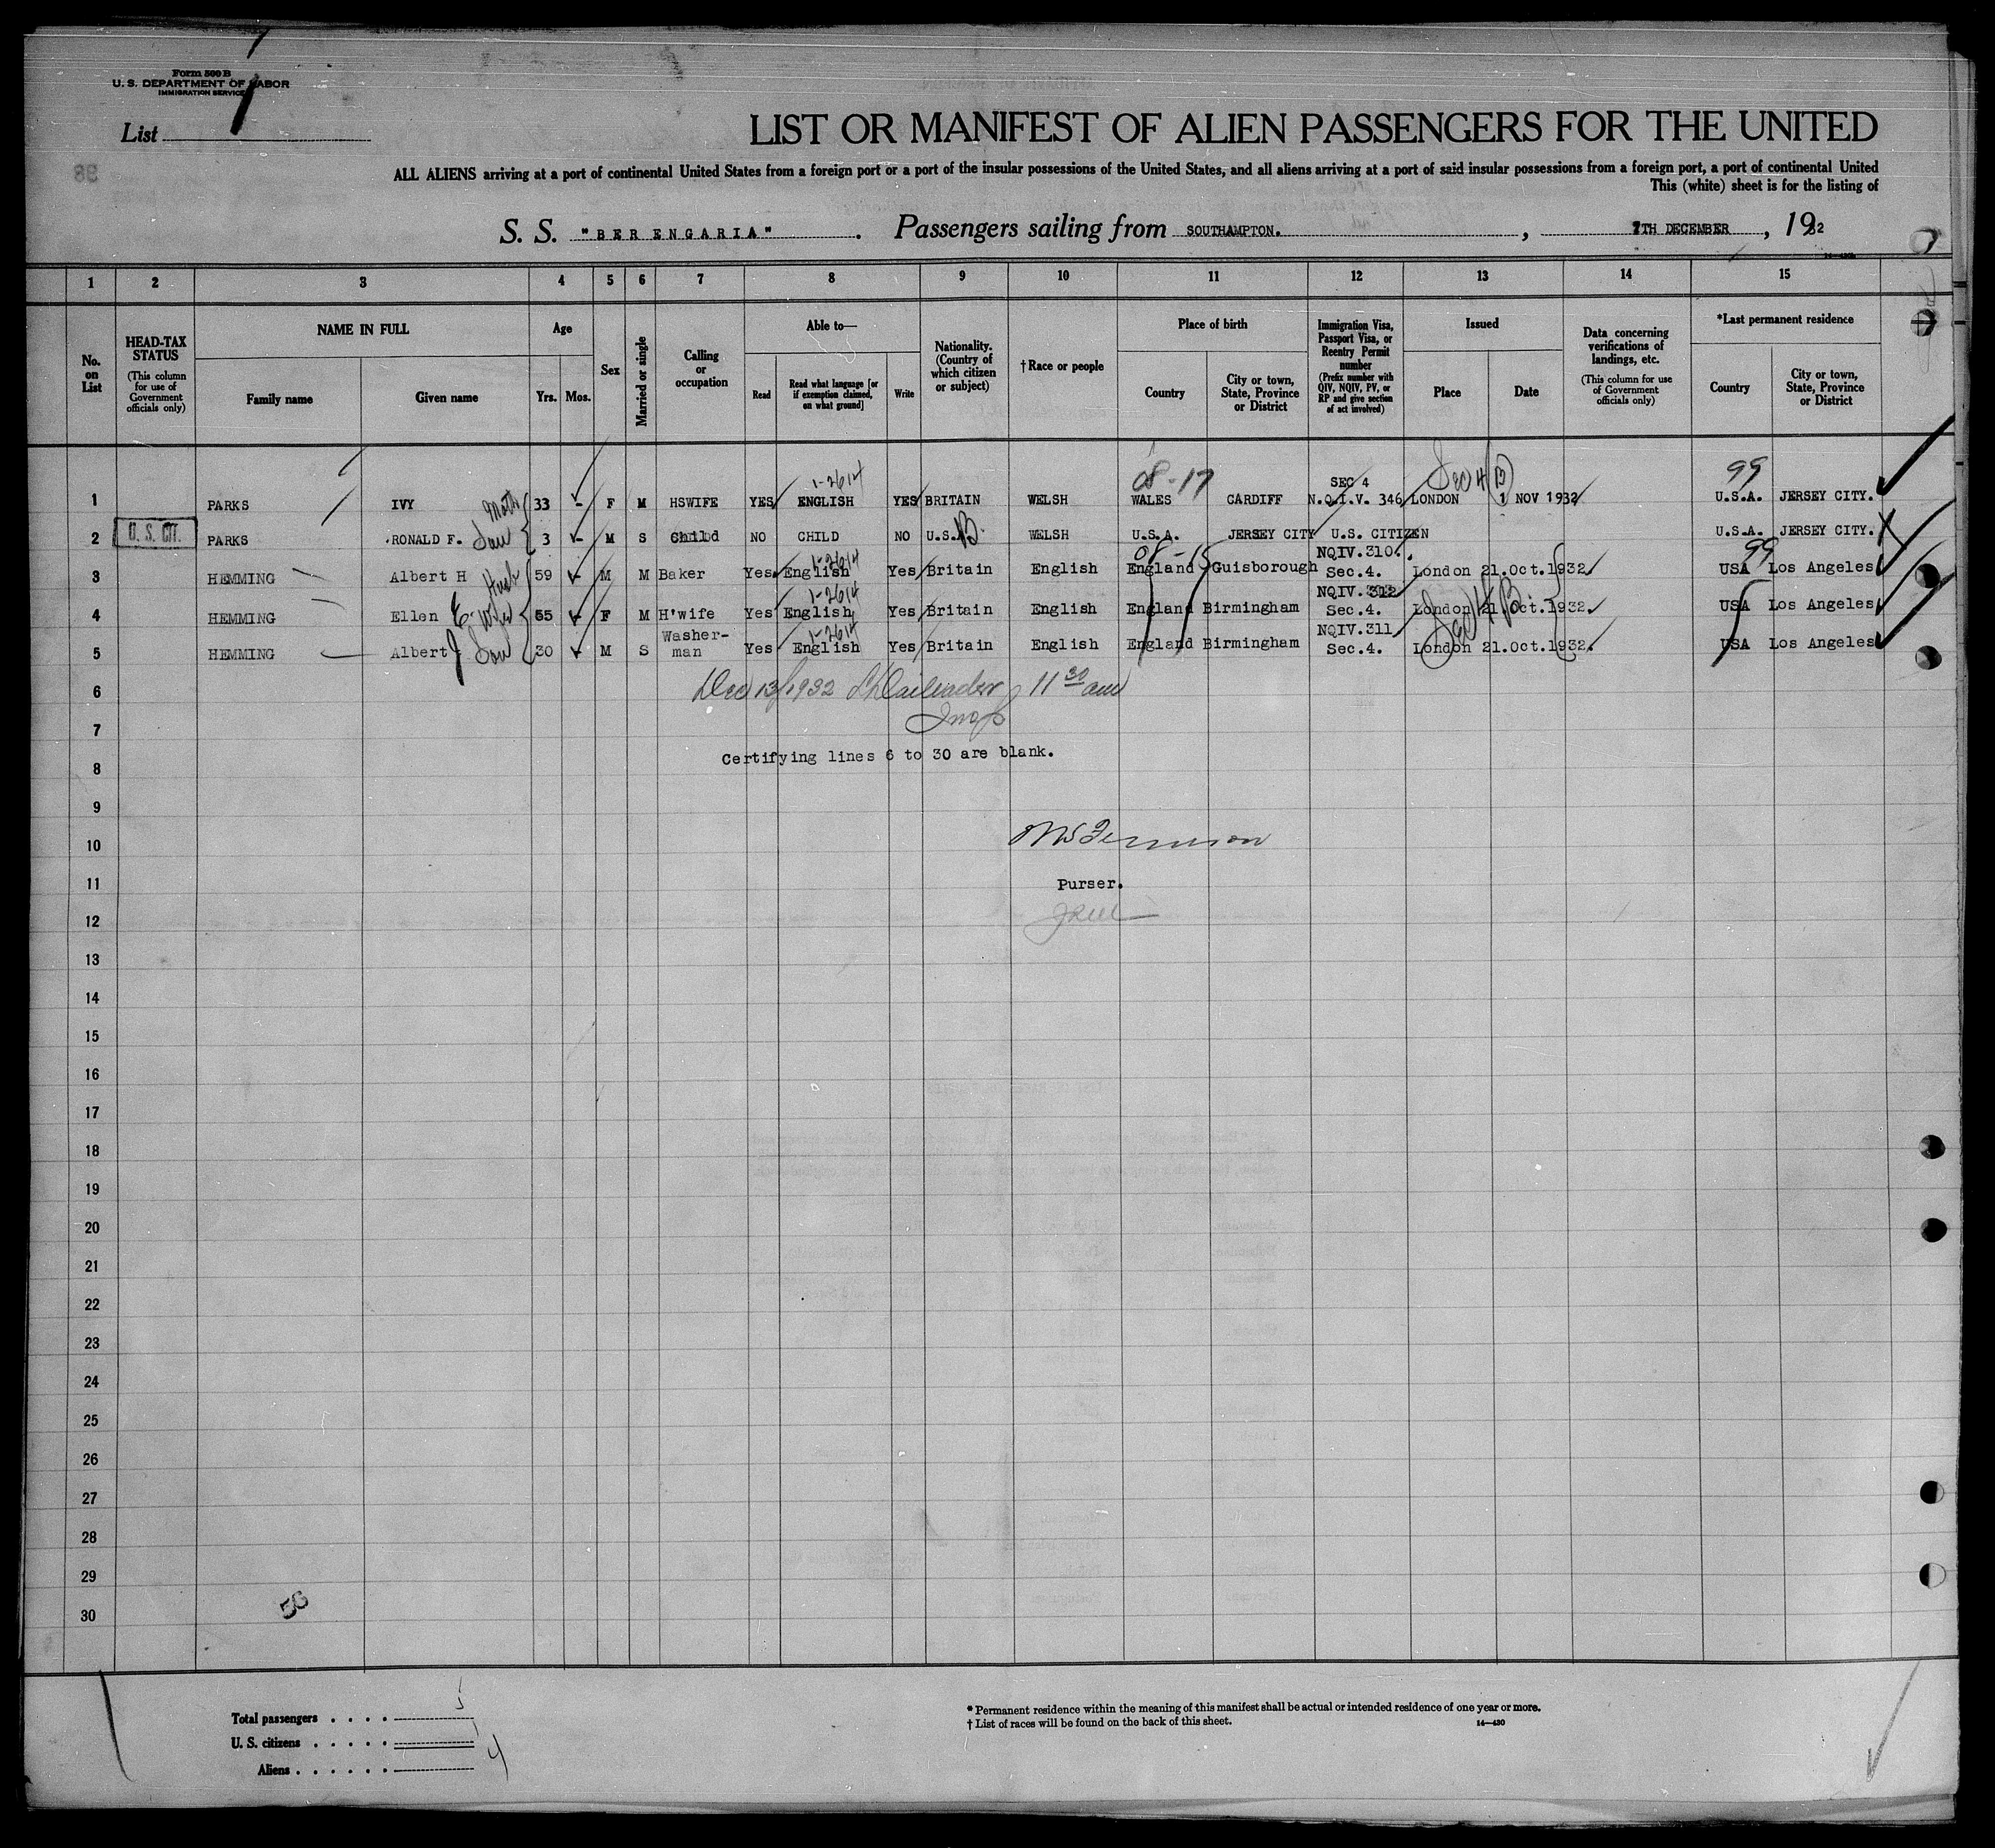 Form 500 B
U. S. DEPARTMENT OF LABOR
IMMIGRATION SERVICE
List 1
98
LIST OR MANIFEST OF ALIEN PASSENGERS FOR THE UNITED
ALL ALIENS arriving at a port of continental United States from a foreign port or a port of the insular possessions of the United States, and all aliens arriving at a port of said insular possessions from a foreign port, a port of continental United
This (white) sheet is for the listing of
S. S. "BERENGARIA". Passengers sailing from SOUTHAMPTON. , 7TH DECEMBER , 1932
14-430
1 2 3 4 5 6 7 8 9 10 11 12 13 14 15
No. on List
HEAD-TAX STATUS (This column for use of Government officials only)
NAME IN FULL
Family name
Given name
Age
Yrs. Mos.
Sex
Married or single
Calling or occupation
Able to—
Read
Read what language [or if exemption claimed, on what ground]
Write
Nationality. (Country of which citizen or subject)
†Race or people
Place of birth
Country
City or town, State, Province or District
Immigration Visa, Passport Visa, or Reentry Permit number (Prefix number with QIV, NQIV, PV, or RP and give section of act involved)
Issued
Place
Date
Data concerning verifications of landings, etc. (This column for use of Government officials only)
*Last permanent residence
Country
City or town, State, Province or District
1-2614 08-17 SEC 4 Sec 4 B 99
1 PARKS IVY Moth 33 - F M HSWIFE YES ENGLISH YES BRITAIN WELSH WALES CARDIFF N.Q.I.V. 346 LONDON 1 NOV 1932 U.S.A. JERSEY CITY.
2 U. S. CIT. PARKS RONALD F. Son 3 - M S Child NO CHILD NO U.S. B. WELSH U.S.A. JERSEY CITY U.S. CITIZEN U.S.A. JERSEY CITY.
1-2614 08-15 NQIV.310. 99
3 HEMMING Albert H Husb 59 - M M Baker Yes English Yes Britain English England Guisborough Sec.4. London 21.Oct.1932. USA Los Angeles
1-2614 NQIV.312
4 HEMMING Ellen E. Wife 55 - F M H'wife Yes English Yes Britain English England Birmingham Sec.4. London 21.Oct.1932. USA Los Angeles
Sec 4 B
Washer- 1-2614 NQIV.311
5 HEMMING Albert J Son 30 - M S man Yes English Yes Britain English England Birmingham Sec.4. London 21.Oct.1932. USA Los Angeles
6 Dec 13/1932 11 30 am
7 Insp
8 Certifying lines 6 to 30 are blank.
9
10
11 Purser.
12
13
14
15
16
17
18
19
20
21
22
23
24
25
26
27
28
29
30
50
Total passengers . . . . 5
U. S. citizens . . . . . 1
Aliens . . . . . . 4
* Permanent residence within the meaning of this manifest shall be actual or intended residence of one year or more.
† List of races will be found on the back of this sheet.
14—430